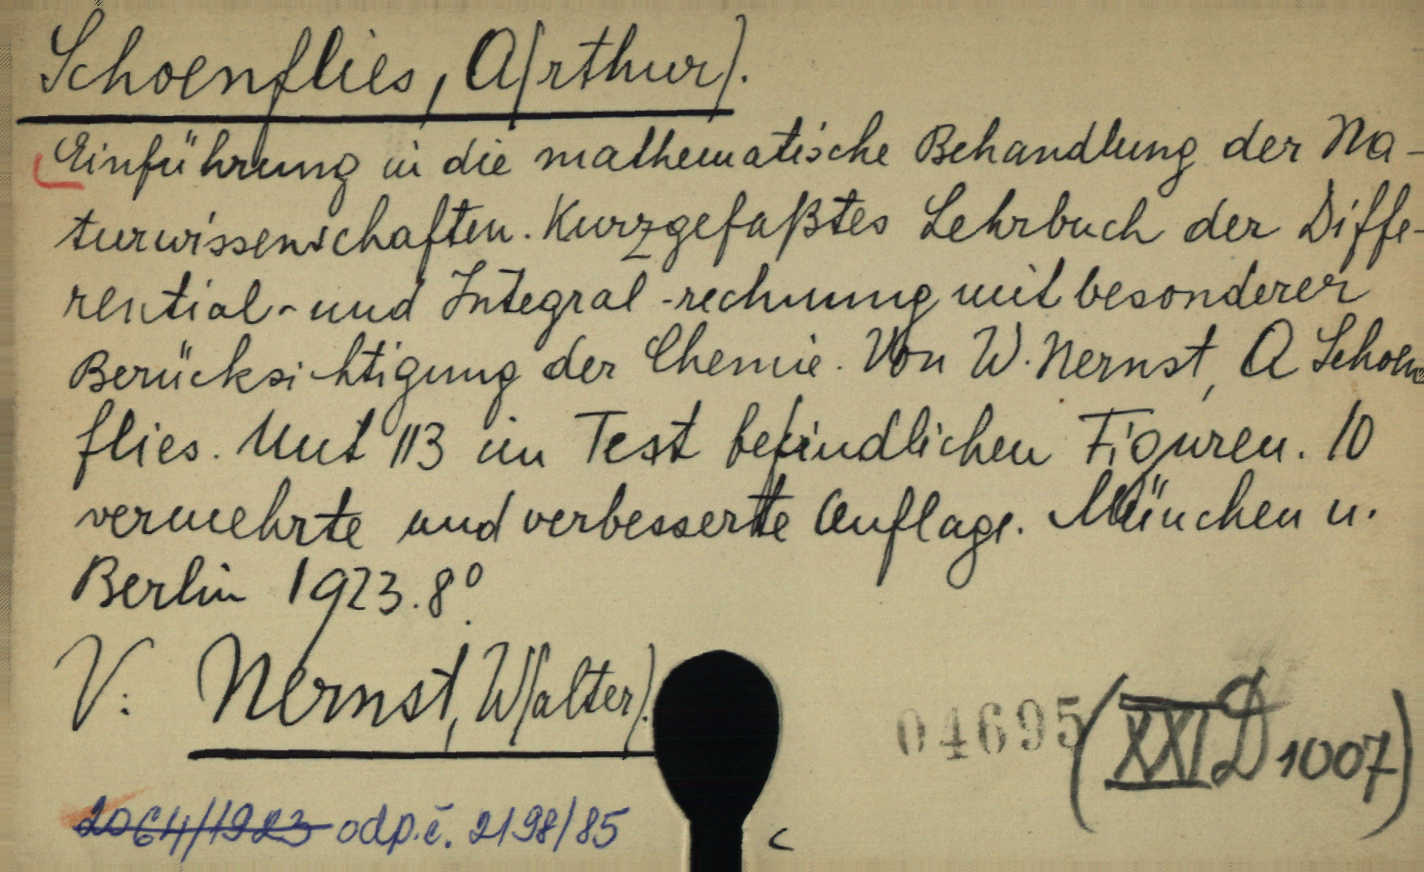 Schoenflies, A(rthur).
Einführung in die mathematische Behandlung der Na-
turwissenschaften. Kurzgefaßtes Lehrbuch der Diffe-
rential- und Integral-rechnung mit besonderer
Berücksichtigung der Chemie. Von W. Nernst, A Schoen
flies. Mit 113 im Test befindlichen Figuren. 10
vermehrte und verbesserte Auflage. München u.
Berlin 1923. 8°.
V: Nernst, W(alter).
04695 (XXI D 1007)
2064/1923 odp.č. 2198/85